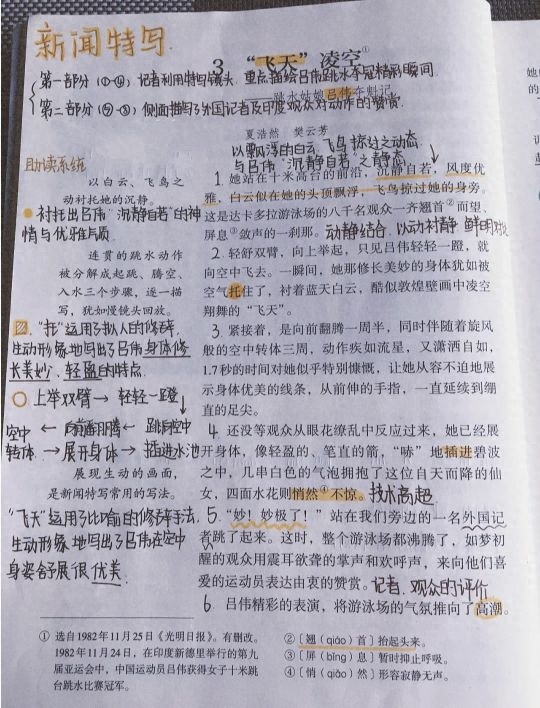 新闻特写
3 “飞天”凌空①
第一部分(①-④)记者利用特写镜头,重点描绘吕伟跳水夺冠精彩瞬间
跳水姑娘吕伟夺魁记
第二部分(⑤-⑥)侧面描写了外国记者及印度观众对动作的赞赏.
夏浩然 樊云芳
以飘浮的白云、飞鸟掠过之动态
与吕伟“沉静自若”之静态
助读系统
以白云、飞鸟之
动衬托她的沉静。
衬托出吕伟“沉静自若”的神
情与优雅气质
连贯的跳水动作
被分解成起跳、腾空、
入水三个步骤,逐一描
写,犹如慢镜头回放。
“托”运用了拟人的修辞,
生动形象地写出了吕伟身体修
长美妙、轻盈的特点
上举双臂→轻轻一蹬
空中←向前翻腾←跳向空中
转体→展开身体→插进水池
展现生动的画面,
是新闻特写常用的写法。
“飞天”运用了比喻的修辞手法,
生动形象地写出了吕伟在空中
身姿舒展很优美.
1. 她站在十米高台的前沿,沉静自若,风度优
雅,白云似在她的头顶飘浮,飞鸟掠过她的身旁。
这是达卡多拉游泳场的八千名观众一齐翘首②而望、
屏息③敛声的一刹那。动静结合,以动衬静 鲜明对比
2. 轻舒双臂,向上举起,只见吕伟轻轻一蹬,就
向空中飞去。一瞬间,她那修长美妙的身体犹如被
空气托住了,衬着蓝天白云,酷似敦煌壁画中凌空
翔舞的“飞天”。
3. 紧接着,是向前翻腾一周半,同时伴随着旋风
般的空中转体三周,动作疾如流星,又潇洒自如,
1.7秒的时间对她似乎特别慷慨,让她从容不迫地展
示身体优美的线条,从前伸的手指,一直延续到绷
直的足尖。
4. 还没等观众从眼花缭乱中反应过来,她已经展
开身体,像轻盈的、笔直的箭,“哧”地插进碧波
之中,几串白色的气泡拥抱了这位自天而降的仙
女,四面水花则悄然④不惊。技术高超
5. “妙!妙极了!”站在我们旁边的一名外国记
者跳了起来。这时,整个游泳场都沸腾了,如梦初
醒的观众用震耳欲聋的掌声和欢呼声,来向他们喜
爱的运动员表达由衷的赞赏。记者、观众的评价
6. 吕伟精彩的表演,将游泳场的气氛推向了高潮。
① 选自1982年11月25日《光明日报》。有删改。
1982年11月24日,在印度新德里举行的第九
届亚运会中,中国运动员吕伟获得女子十米跳
台跳水比赛冠军。
②〔翘(qiáo)首〕抬起头来。
③〔屏(bǐng)息〕暂时抑止呼吸。
④〔悄(qiǎo)然〕形容寂静无声。